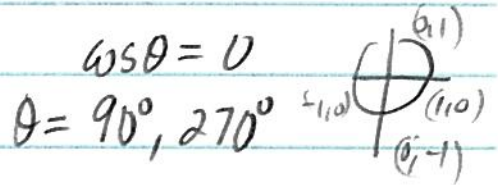 cosθ = 0
θ = 90°, 270°
(0,1)
(-1,0)
(1,0)
(0,-1)